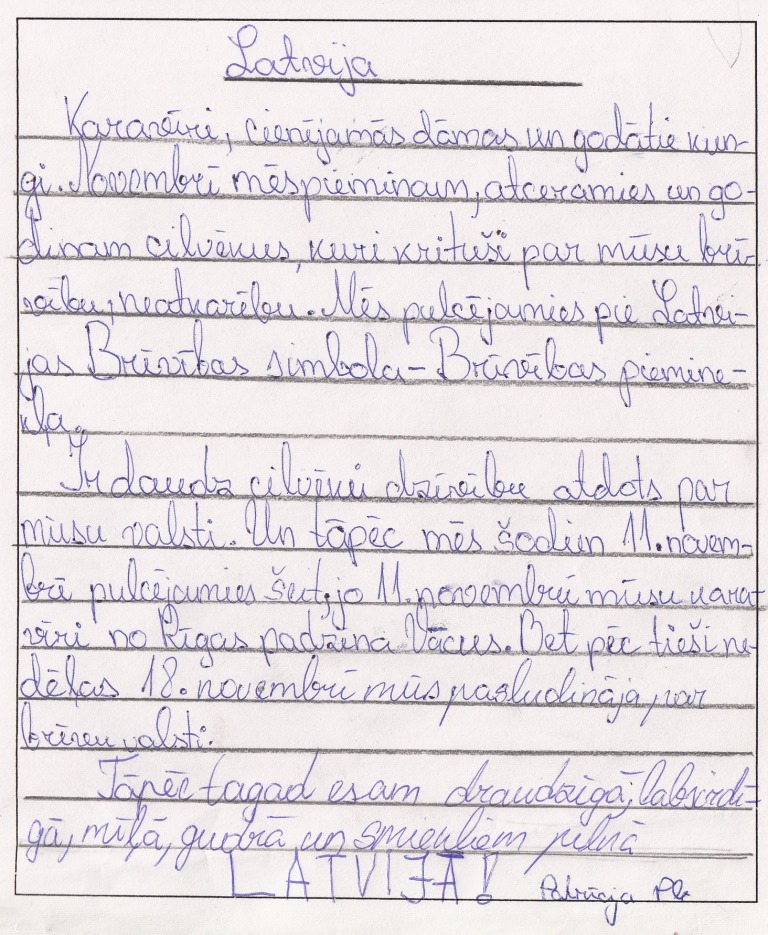 Latvija
Karavīri, cienējamās dāmas un godātie kun-
gi. Novembrī mēs pieminam, atceramies un go-
dinam cilvēkus, kuri krituši par mūsu brī-
vību, neatkarību. Mēs pulcējamies pie Latvi-
jas Brīvības simbola - Brīvības piemine-
kļa.
Ir daudz cilvēku dzīvību atdots par
mūsu valsti. Un tāpēc mēs šodien 11. novem-
brī pulcējamies šeit, jo 11. novembrī mūsu kara-
vīri no Rīgas padzina Vācus. Bet pēc tieši ne-
dēļas 18. novembrī mūs pasludināja par
brīvu valsti.
Tāpēc tagad esam draudzīgā, labsirdī-
gā, mīļā, gudrā un smiekliem pilnā
LATVIJĀ!
Patrīcija